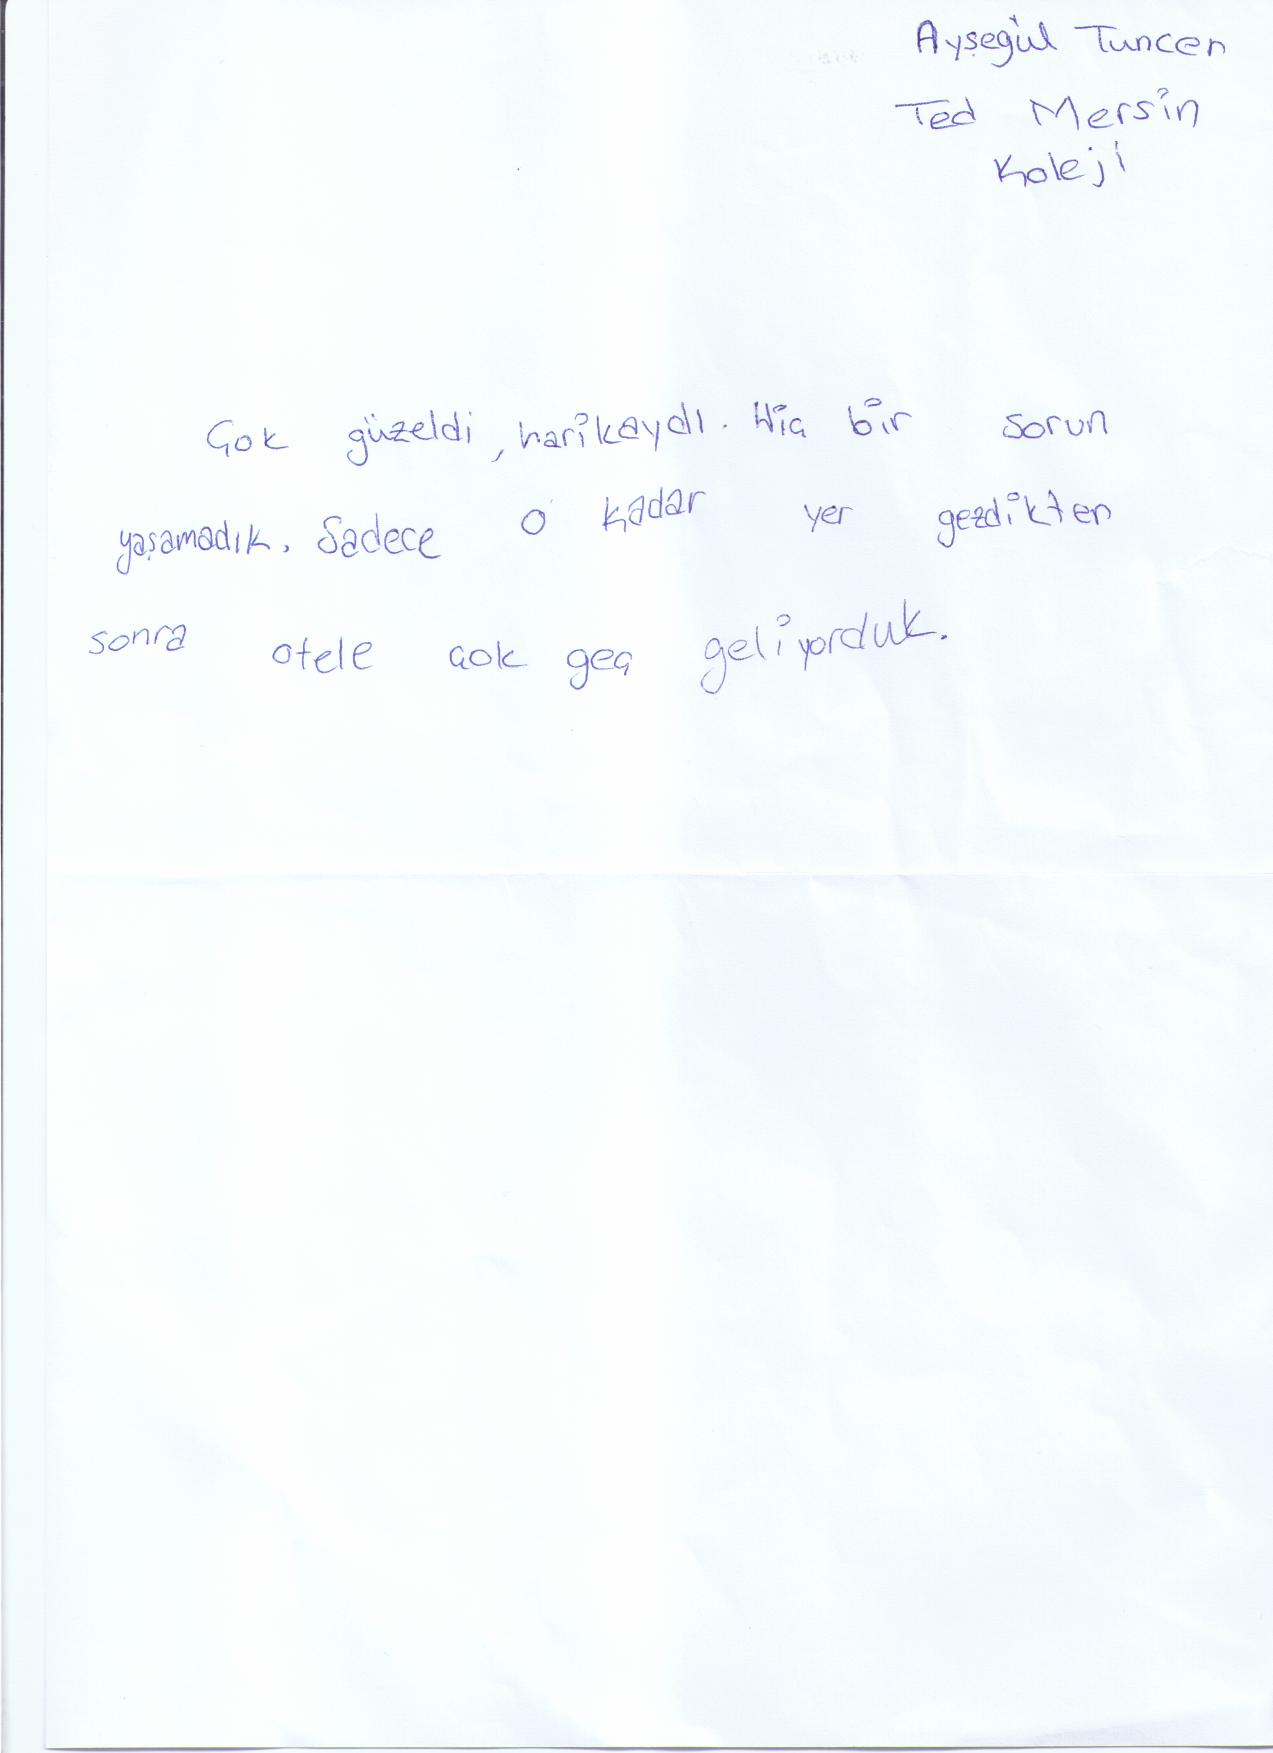 Ayşegül Tuncer
Ted Mersin
Koleji
Çok güzeldi, harikaydı. Hiç bir sorun
yaşamadık. Sadece o kadar yer gezdikten
sonra otele çok geç geliyorduk.